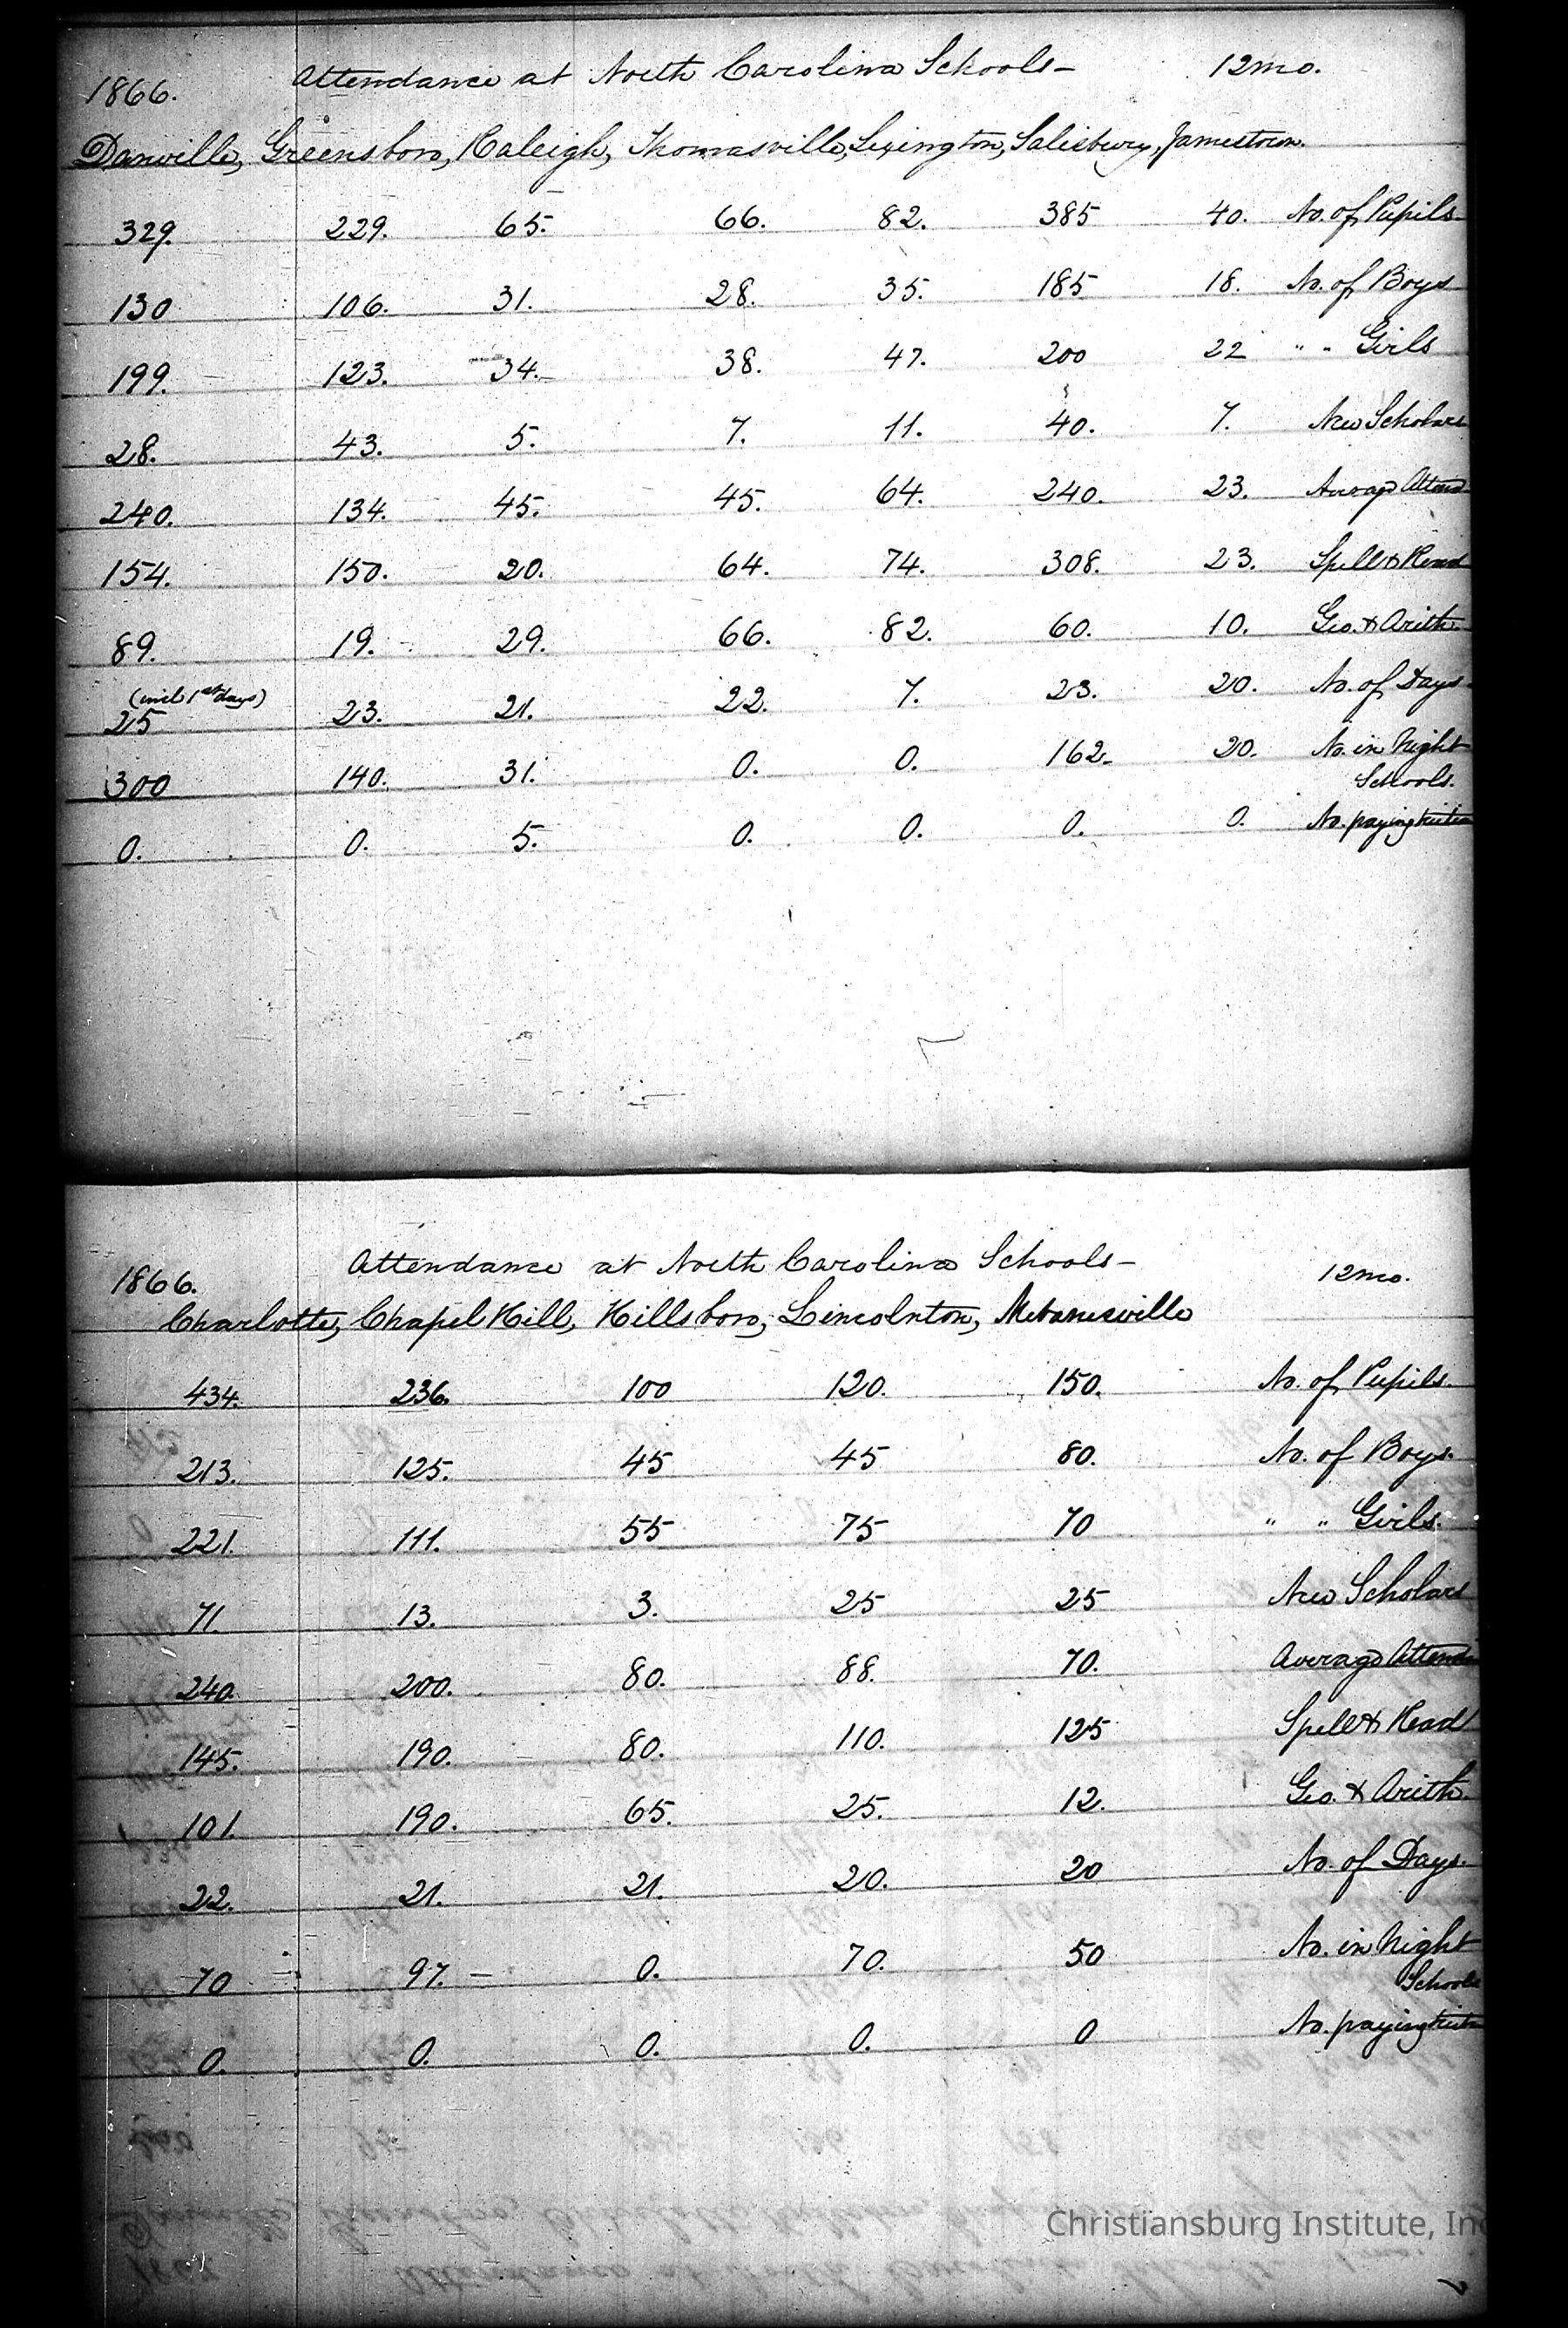 1866. Attendance at North Carolina Schools- 12mo.
Danville, Greensboro, Raleigh, Thomasville, Lexington, Salisbury, Jamestown.
329. 229. 65. 66. 82. 385 40. No. of Pupils
130 106. 31. 28. 35. 185 18. No. of Boys
199. 123. 34. 38. 47. 200 22 " " Girls
28. 43. 5. 7. 11. 40. 7. New Scholars
240. 134. 45. 45. 64. 240. 23. Average Attend
154. 150. 20. 64. 74. 308. 23. Spell & Read
89. 19. 29. 66. 82. 60. 10. Geo. & Arith.
(incl 1st days)
25 23. 21. 22. 7. 23. 20. No. of Days
300 140. 31. 0. 0. 162. 20. No. in Night
Schools.
0. 0. 5. 0. 0. 0. 0. No. paying tuition
1866. Attendance at North Carolina Schools- 12mo.
Charlotte, Chapel Hill, Hillsboro, Lincolnton, Mebanesville
434. 236. 100 120. 150. No. of Pupils.
213. 125. 45 45 80. No. of Boys.
221. 111. 55 75 70 " " Girls.
71. 13. 3. 25 25 New Scholars
240. 200. 80. 88. 70. Average Attend
145. 190. 80. 110. 125 Spell & Read
101. 190. 65. 25. 12. Geo. & Arith.
22. 21. 21. 20. 20 No. of Days.
70 97. 0. 70. 50 No. in Night
Schools
0. 0. 0. 0. 0 No. paying tuition
Christiansburg Institute, Inc